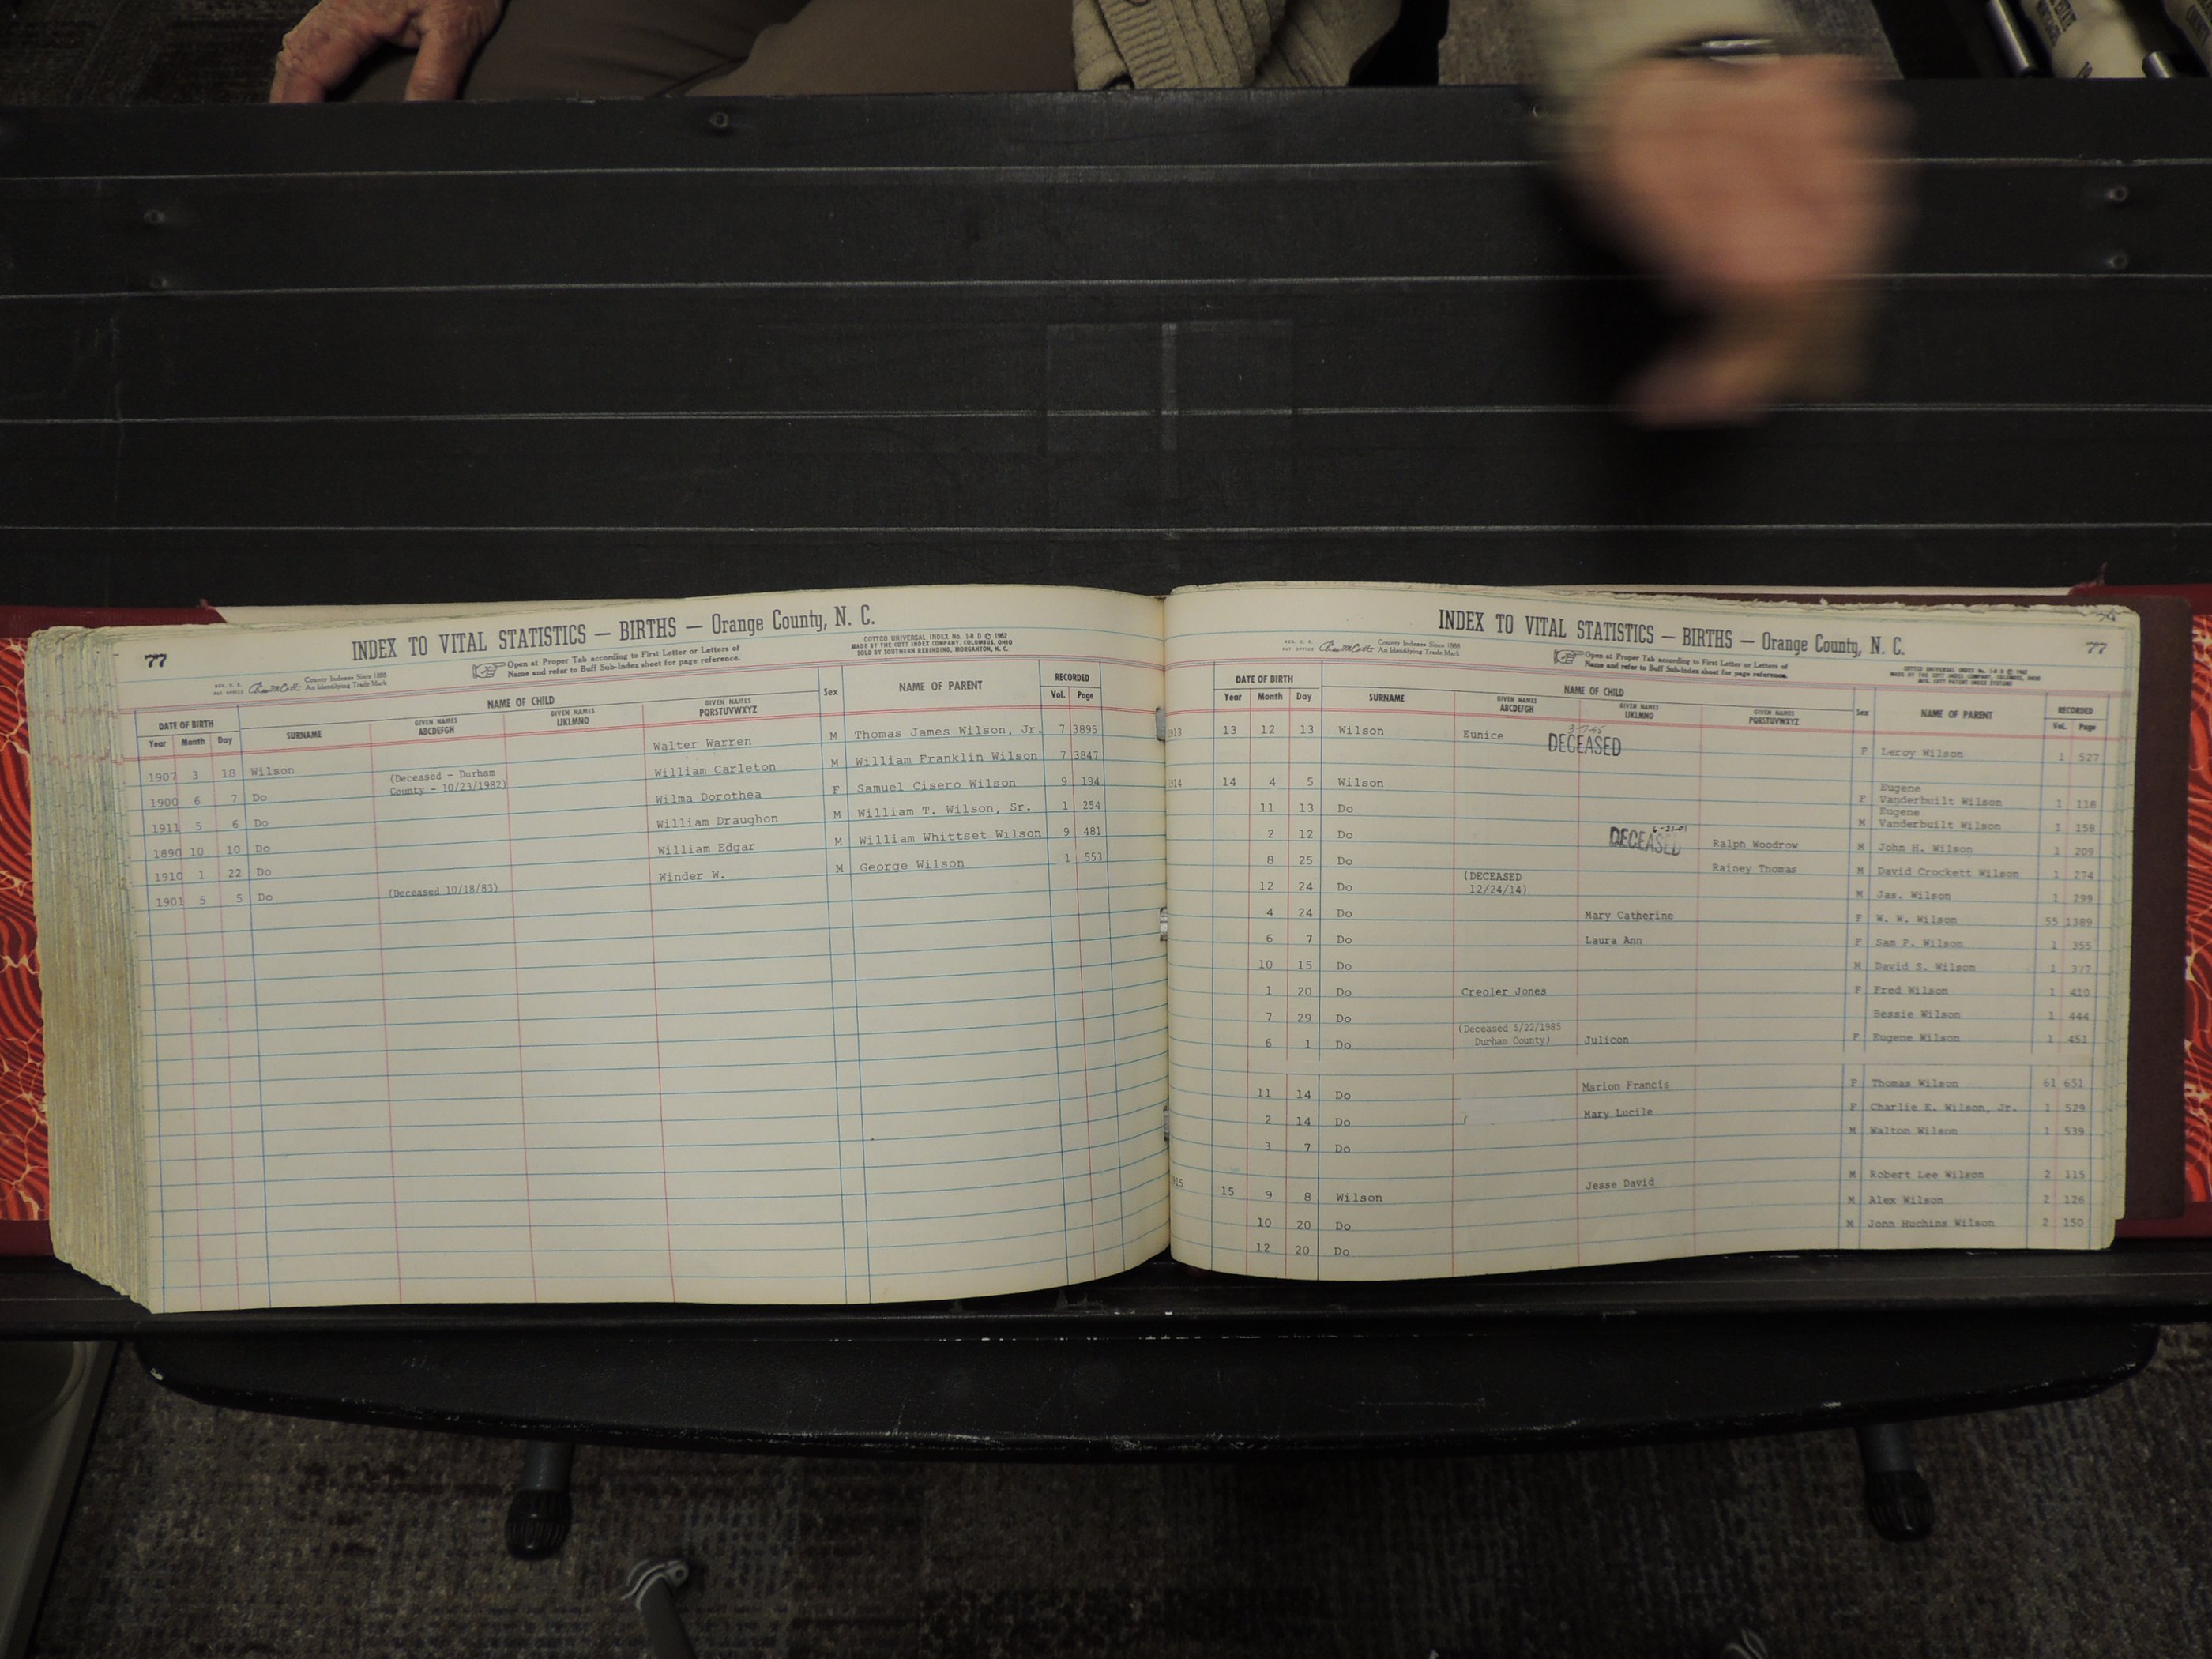 77
INDEX TO VITAL STATISTICS — BIRTHS — Orange County, N. C.
County Indexes Since 1888
An Identifying Trade Mark
Open at Proper Tab according to First Letter or Letters of
Name and refer to Buff Sub-Index sheet for page reference.
COTTCO UNIVERSAL INDEX No. 1-8 D © 1962
MADE BY THE COTT INDEX COMPANY, COLUMBUS, OHIO
SOLD BY SOUTHERN REBINDING, MORGANTON, N. C.
DATE OF BIRTH NAME OF CHILD Sex NAME OF PARENT RECORDED
Year Month Day SURNAME GIVEN NAMES ABCDEFGH GIVEN NAMES IJKLMNO GIVEN NAMES PQRSTUVWXYZ Vol. Page
1907 3 18 Wilson Walter Warren M Thomas James Wilson, Jr. 7 3895
1900 6 7 Do (Deceased - Durham County - 10/23/1982) William Carleton M William Franklin Wilson 7 3847
1911 5 6 Do Wilma Dorothea F Samuel Cisero Wilson 9 194
1890 10 10 Do William Draughon M William T. Wilson, Sr. 1 254
1910 1 22 Do William Edgar M William Whittset Wilson 9 481
1901 5 5 Do (Deceased 10/18/83) Winder W. M George Wilson 1 553
INDEX TO VITAL STATISTICS — BIRTHS — Orange County, N. C.
77
County Indexes Since 1888
An Identifying Trade Mark
Open at Proper Tab according to First Letter or Letters of
Name and refer to Buff Sub-Index sheet for page reference.
DATE OF BIRTH NAME OF CHILD Sex NAME OF PARENT RECORDED
Year Month Day SURNAME GIVEN NAMES ABCDEFGH GIVEN NAMES IJKLMNO GIVEN NAMES PQRSTUVWXYZ Vol. Page
1913 13 12 13 Wilson Eunice DECEASED F Leroy Wilson 1 527
1914 14 4 5 Wilson F Eugene Vanderbuilt Wilson 1 118
11 13 Do M Eugene Vanderbuilt Wilson 1 158
2 12 Do DECEASED 6-21-01 Ralph Woodrow M John H. Wilson 1 209
8 25 Do Rainey Thomas M David Crockett Wilson 1 274
12 24 Do (DECEASED 12/24/14) M Jas. Wilson 1 299
4 24 Do Mary Catherine F W. W. Wilson 55 1389
6 7 Do Laura Ann F Sam P. Wilson 1 355
10 15 Do M David S. Wilson 1 377
1 20 Do Creoler Jones F Fred Wilson 1 410
7 29 Do Bessie Wilson 1 444
6 1 Do (Deceased 5/22/1985 Durham County) Julicon F Eugene Wilson 1 451
11 14 Do Marion Francis F Thomas Wilson 61 651
2 14 Do ( Mary Lucile F Charlie E. Wilson, Jr. 1 529
3 7 Do M Walton Wilson 1 539
15 15 9 8 Wilson Jesse David M Robert Lee Wilson 2 115
10 20 Do M Alex Wilson 2 126
12 20 Do M John Huchins Wilson 2 150